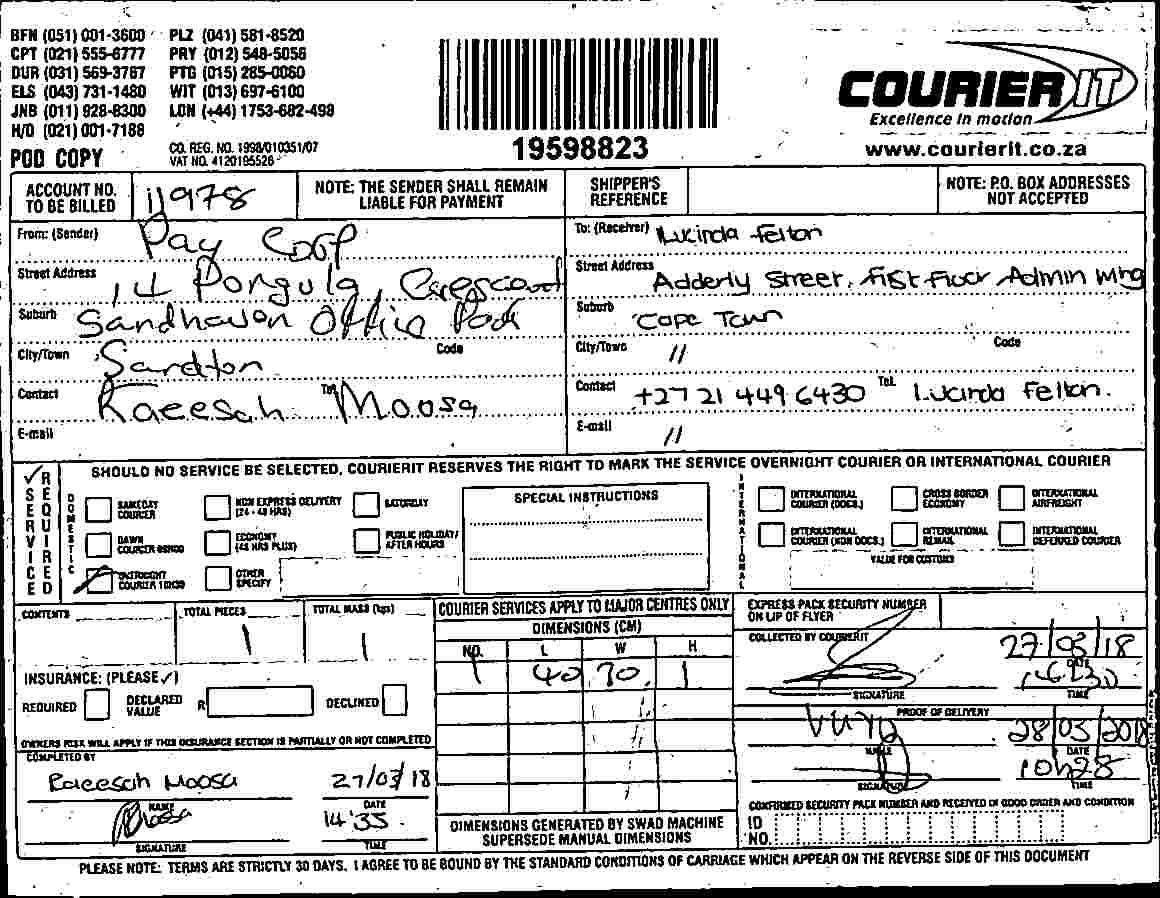 BFN (051) 001-3600 PLZ (041) 581-8520
CPT (021) 555-6777 PRY (012) 548-5056
DUR (031) 569-3767 PTG (015) 285-0060
ELS (043) 731-1480 WIT (013) 697-6100
JNB (011) 928-8300 LON (+44) 1753-682-498
H/O (021) 001-7188
POD COPY
CO. REG. NO. 1998/010351/07
VAT NO. 4120195526
19598823
COURIER IT
Excellence in motion
www.courierit.co.za
ACCOUNT NO. TO BE BILLED 11978
NOTE: THE SENDER SHALL REMAIN LIABLE FOR PAYMENT
SHIPPER'S REFERENCE
NOTE: P.O. BOX ADDRESSES NOT ACCEPTED
From: (Sender) Pay Corp
Street Address 14 Pongula
Suburb Sandhaven Office Park
City/Town Sandton Code
Contact Raeesah Tel. Moosa
E-mail
To: (Receiver) Lucinda Felton
Street Address Adderly Street, Fist Floor Admin Wing
Suburb Cape Town
City/Town 11 Code
Contact +27 21 449 6430 Tel. Lucinda Felton.
E-mail 11
SERVICE REQUIRED
SHOULD NO SERVICE BE SELECTED, COURIERIT RESERVES THE RIGHT TO MARK THE SERVICE OVERNIGHT COURIER OR INTERNATIONAL COURIER
DOMESTIC
SAMEDAY COURIER
NON EXPRESS DELIVERY (24 - 48 HRS)
SATURDAY
DAWN COURIER 08H00
ECONOMY (48 HRS PLUS)
PUBLIC HOLIDAY/ AFTER HOURS
OVERNIGHT COURIER 10H30
OTHER SPECIFY
SPECIAL INSTRUCTIONS
INTERNATIONAL
INTERNATIONAL COURIER (DOCS.)
CROSS BORDER ECONOMY
INTERNATIONAL AIRFREIGHT
INTERNATIONAL COURIER (NON DOCS.)
INTERNATIONAL REMAIL
INTERNATIONAL DEFERRED COURIER
VALUE FOR CUSTOMS
CONTENTS
TOTAL PIECES 1
TOTAL MASS (kgs) 1
INSURANCE: (PLEASE ✓)
REQUIRED DECLARED VALUE R DECLINED
OWNERS RISK WILL APPLY IF THIS INSURANCE SECTION IS PARTIALLY OR NOT COMPLETED
COMPLETED BY
Raeesah Moosa 27/03/18
NAME DATE
Moosa 14:35
SIGNATURE TIME
COURIER SERVICES APPLY TO MAJOR CENTRES ONLY
DIMENSIONS (CM)
NO. L W H
1 40 30 1
DIMENSIONS GENERATED BY SWAD MACHINE SUPERSEDE MANUAL DIMENSIONS
EXPRESS PACK SECURITY NUMBER ON LIP OF FLYER
COLLECTED BY COURIERIT
27/03/18
DATE
SIGNATURE TIME
PROOF OF DELIVERY
Vuyo 28/03/2018
NAME DATE
10h28
SIGNATURE TIME
CONFIRMED SECURITY PACK NUMBER AND RECEIVED IN GOOD ORDER AND CONDITION
ID NO.
PLEASE NOTE: TERMS ARE STRICTLY 30 DAYS. I AGREE TO BE BOUND BY THE STANDARD CONDITIONS OF CARRIAGE WHICH APPEAR ON THE REVERSE SIDE OF THIS DOCUMENT